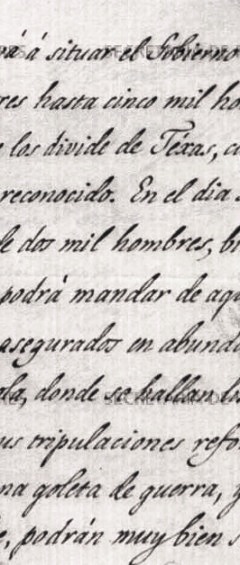 rá á situar el Gobierno
res hasta cinco mil ho
los divide de Téxas, c
reconocido. En el dia
de dos mil hombres, b
podrá mandar de aqu
asegurados en abunda
ola, donde se hallan lo
us tripulaciones refo
na goleta de guerra, y
e, podrán muy bien s